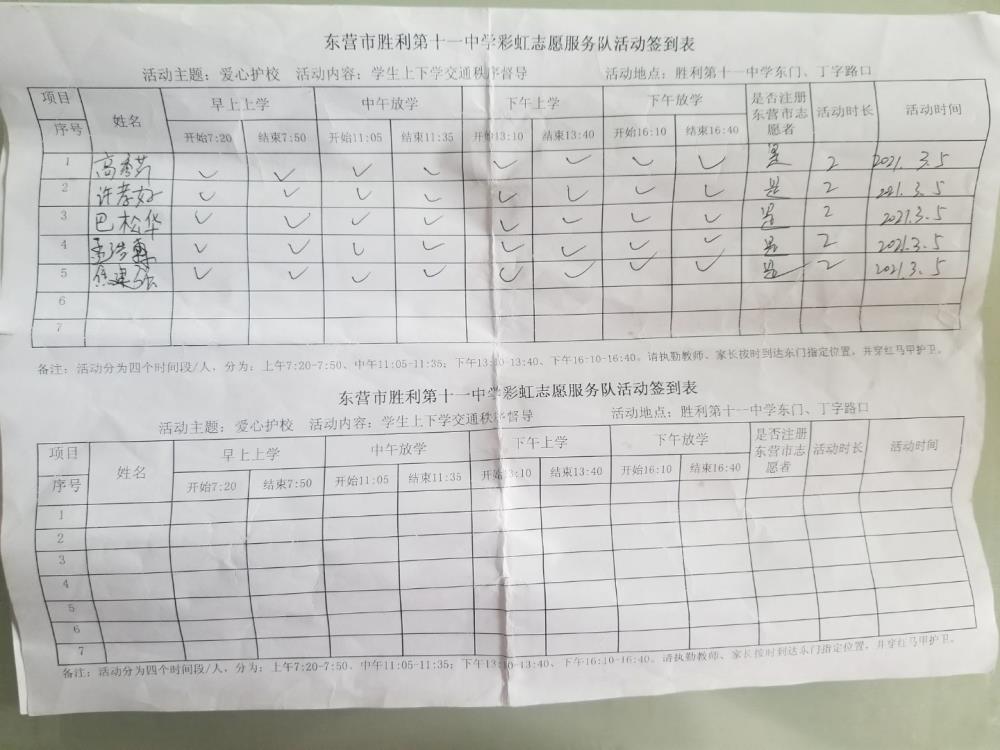 东营市胜利第十一中学彩虹志愿服务队活动签到表
活动主题：爱心护校 活动内容：学生上下学交通秩序督导 活动地点：胜利第十一中学东门、丁字路口
项目 姓名 早上上学 中午放学 下午上学 下午放学 是否注册东营市志愿者 活动时长 活动时间
序号 开始7:20 结束7:50 开始11:05 结束11:35 开始13:10 结束13:40 开始16:10 结束16:40
1 高秀芳 ✓ ✓ ✓ ✓ ✓ ✓ ✓ ✓ 是 2 2021.3.5
2 许孝好 ✓ ✓ ✓ ✓ ✓ ✓ ✓ ✓ 是 2 2021.3.5
3 巴松华 ✓ ✓ ✓ ✓ ✓ ✓ ✓ ✓ 是 2 2021.3.5
4 ✓ ✓ ✓ ✓ ✓ ✓ ✓ ✓ 是 2 2021.3.5
5 ✓ ✓ ✓ ✓ ✓ ✓ ✓ ✓ 是 2 2021.3.5
6
7
备注：活动分为四个时间段/人，分为：上午7:20-7:50、中午11:05-11:35；下午13:10-13:40、下午16:10-16:40。请执勤教师、家长按时到达东门指定位置，并穿红马甲护卫。
东营市胜利第十一中学彩虹志愿服务队活动签到表
活动主题：爱心护校 活动内容：学生上下学交通秩序督导 活动地点：胜利第十一中学东门、丁字路口
项目 姓名 早上上学 中午放学 下午上学 下午放学 是否注册东营市志愿者 活动时长 活动时间
序号 开始7:20 结束7:50 开始11:05 结束11:35 开始13:10 结束13:40 开始16:10 结束16:40
1
2
3
4
5
6
7
备注：活动分为四个时间段/人，分为：上午7:20-7:50、中午11:05-11:35；下午13:10-13:40、下午16:10-16:40。请执勤教师、家长按时到达东门指定位置，并穿红马甲护卫。